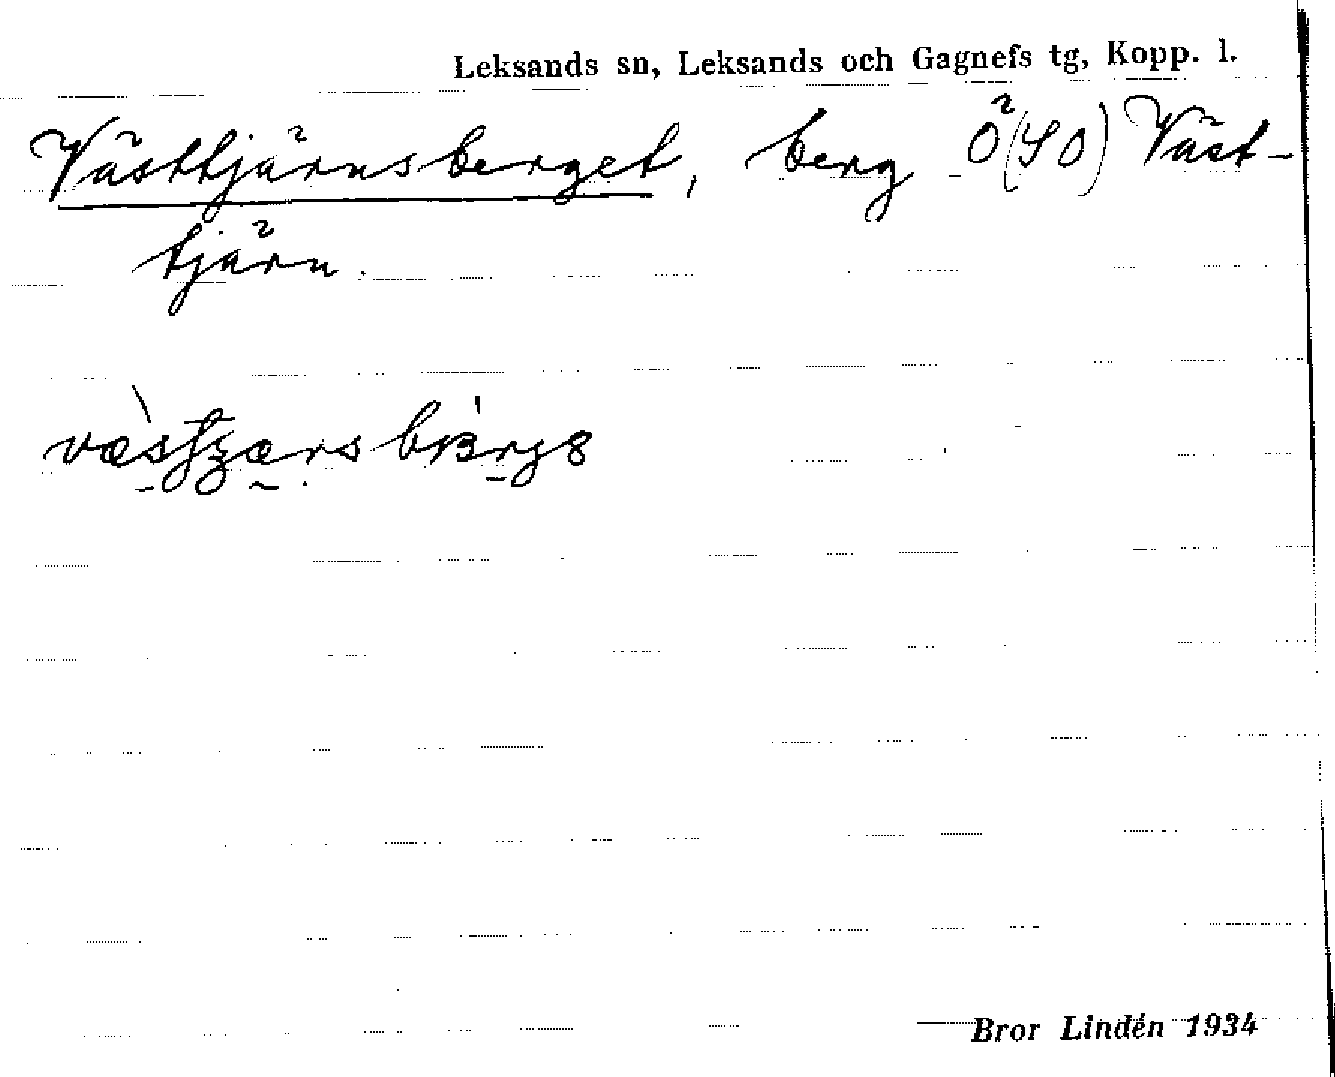 Leksands sn, Leksands och Gagnefs tg, Kopp. l.
Västtjärnsberget, berg Ö(SO) Väst-
tjärn.
Bror Lindén 1934